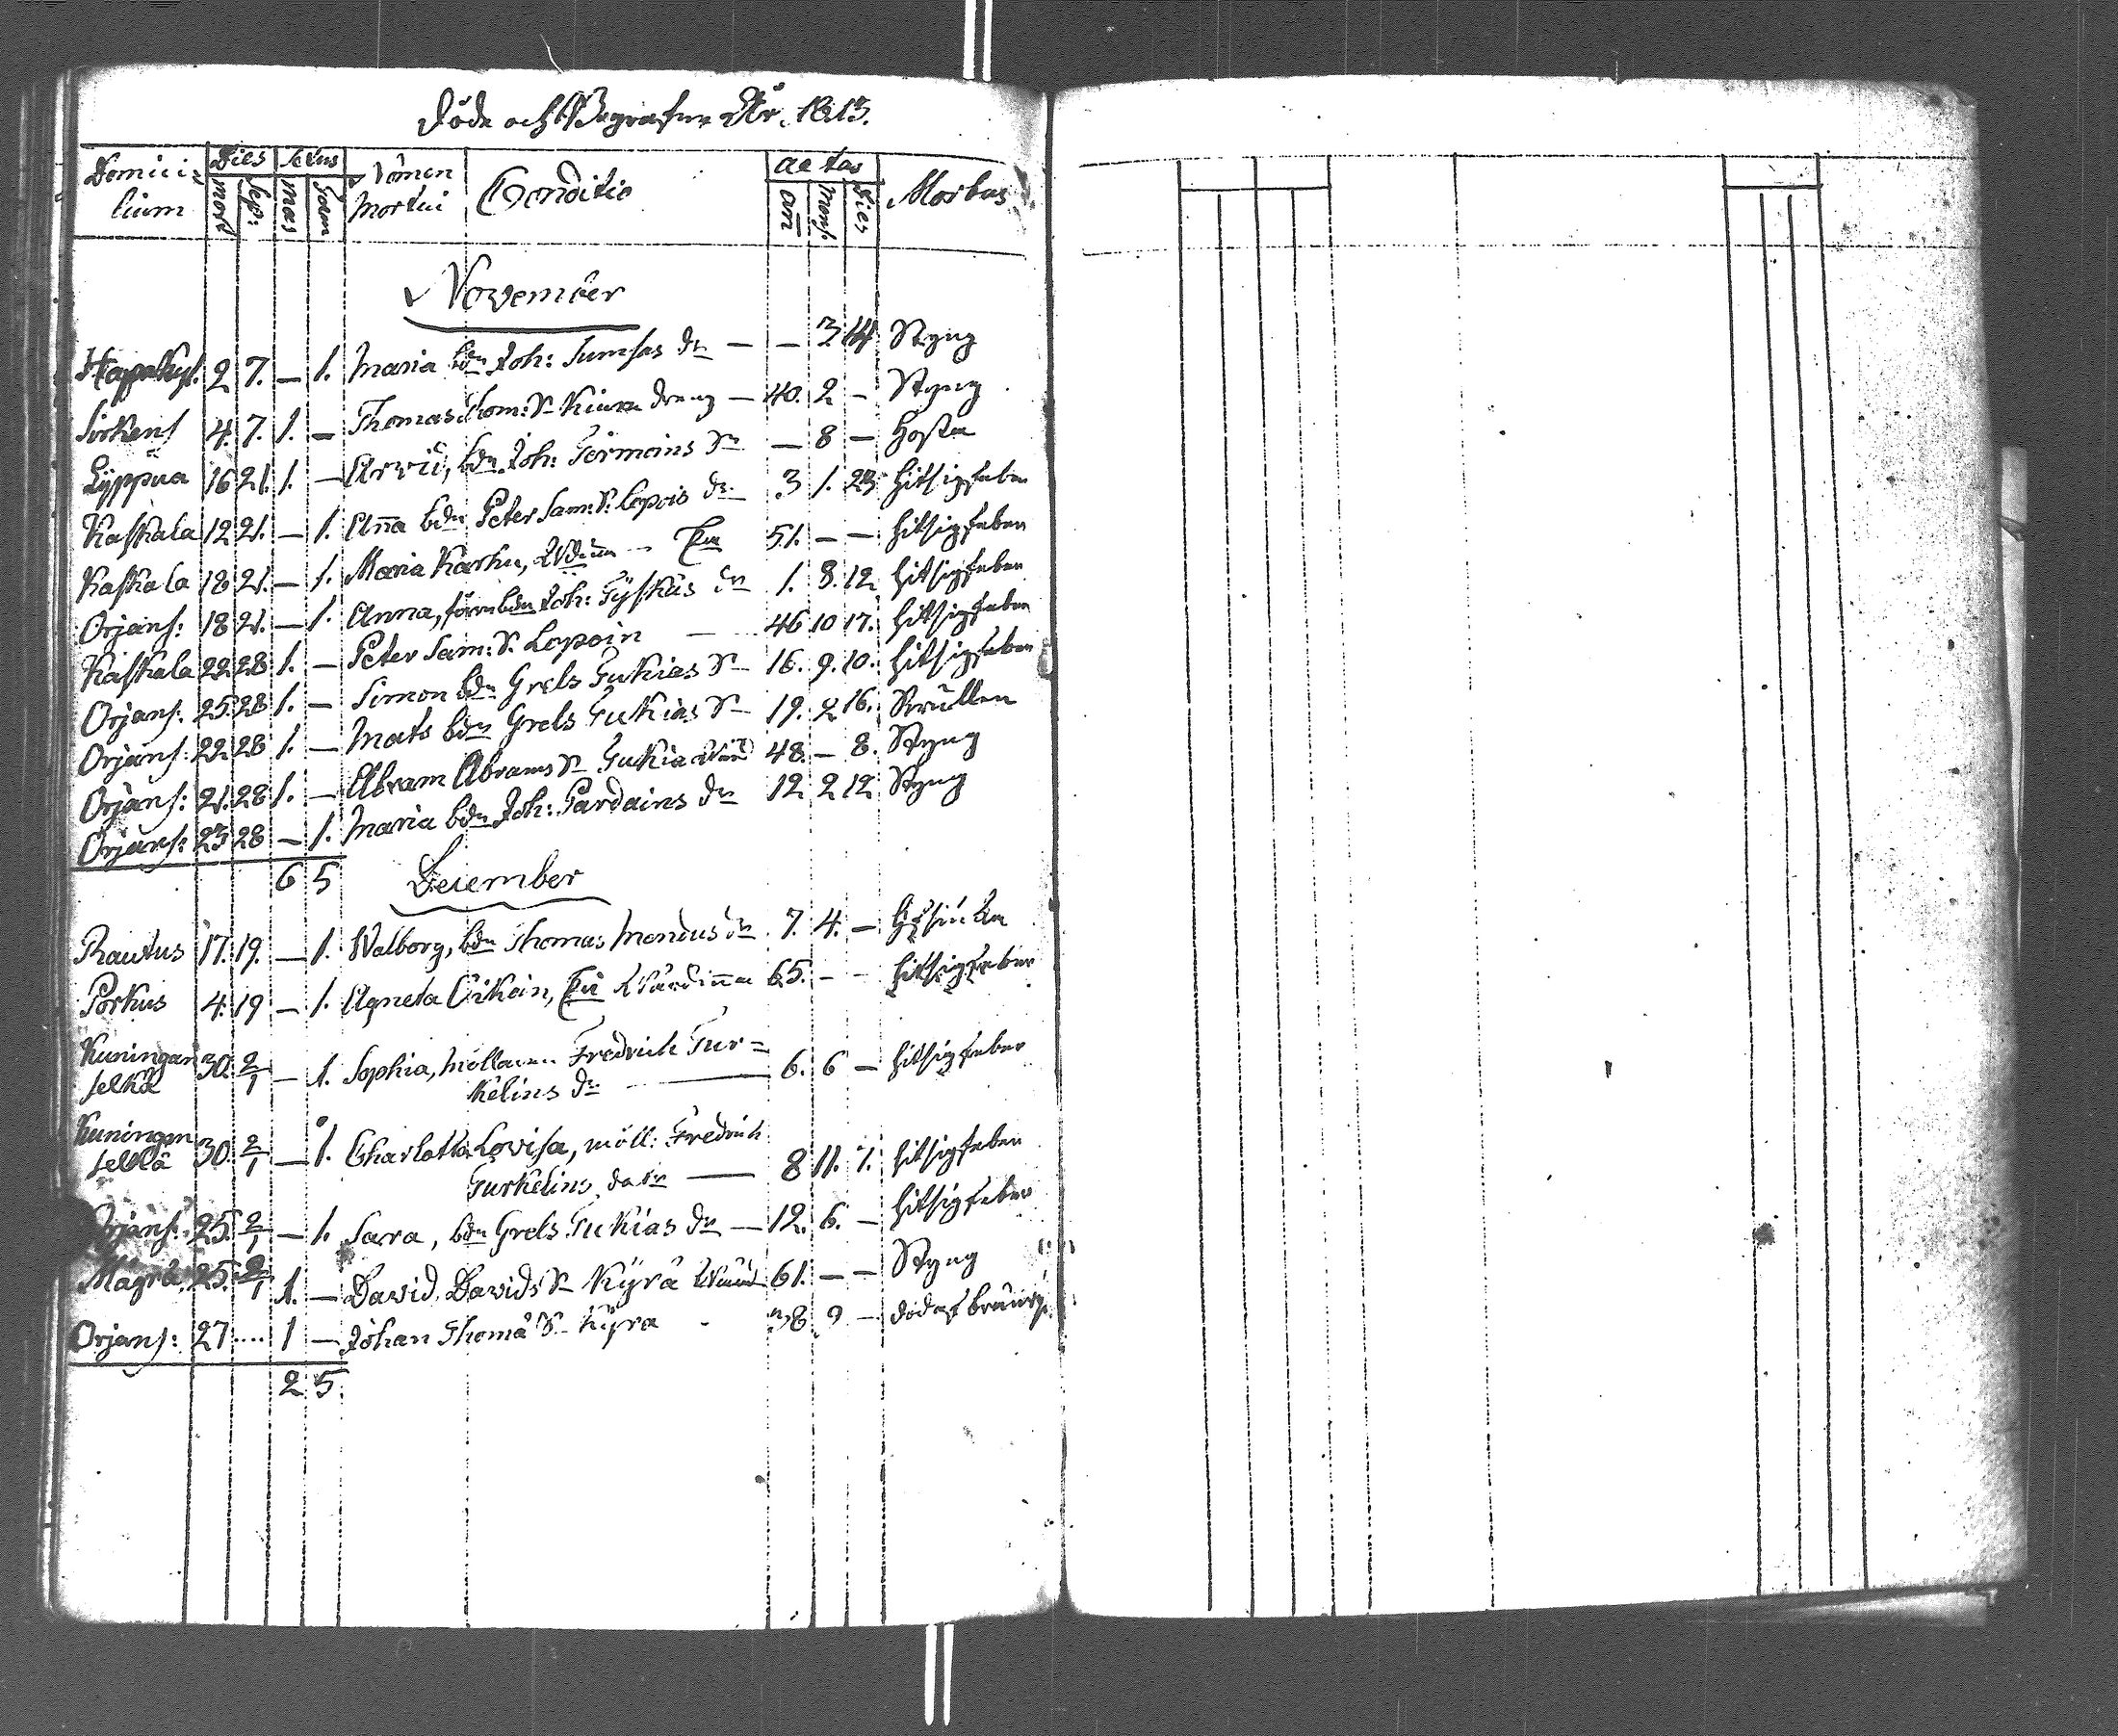 Döde och Begrafne År 1813.
Domici-
lium
Dies
mort
Sep:
Sexus
mas
Foem
Nomen
Mortui
Conditio
aetas
an
Mens.
Dies
Morbus
November
2 7. — 1. Maria bdn Joh: dr — — 3 14 Styng
4. 7. 1. — Thomas Thom: Sn dräng — 40. 2 — Styng
Lyppua 16 21. 1. — Arvid, bdn Joh: Sn — 8 — Hosta
Kaskala 12 21. — 1. Anna bdn Peter Sam: S. Lopois dr 3 1. 23 hitsigfeber
Kaskala 18 21. — 1. Maria Karhu, Enk 51. — — hitsigfeber
Orjans: 18 21. — 1. Anna, Joh: dr 1. 8. 12 hitsigfeber
Kaskala 22 28 1. — Peter Sam: S. Lopoin — 46 10 17. hitsigfeber
Orjans: 25 28 1. — Simon bdn Grels Sn 16. 9. 10. hitsigfeber
Orjans: 22 28 1. — Mats bdn Grels Sn 19. 2 16.
Orjans: 21. 28 1. — Abram Abrams Sn 48. — 8. Styng
Orjans: 23 28 — 1. Maria bdn Joh: Pardains dr 12 2 12 Styng
6 5
December
Rautus 17. 19. — 1. Walborg, bdn Thomas dr 7. 4. —
Porkus 4. 19 — 1. Agneta Oikoin, Enk Wärdinna 65. — — hitsigfeber
Kuningan
selkä 30. 2/1 — 1. Sophia, möllaren Fredrich Tur=
kelins dr — 6. 6 — hitsigfeber
Kuningan
selkä 30. 2/1 — 1. Charlotta Lovisa, möll: Fredrich
Turkelins dotr — 8 11. 7. hitsigfeber
Orjans: 25. 2/1 — 1. Sara, bdn Grels dr — 12. 6. — hitsigfeber
Mägrä 25. 2/1 1. — David Davids Sn Kyrä 61. — — Styng
Orjans: 27 .... 1 — Johan Thomæ S. Kyrä 38 9 —
2 5.